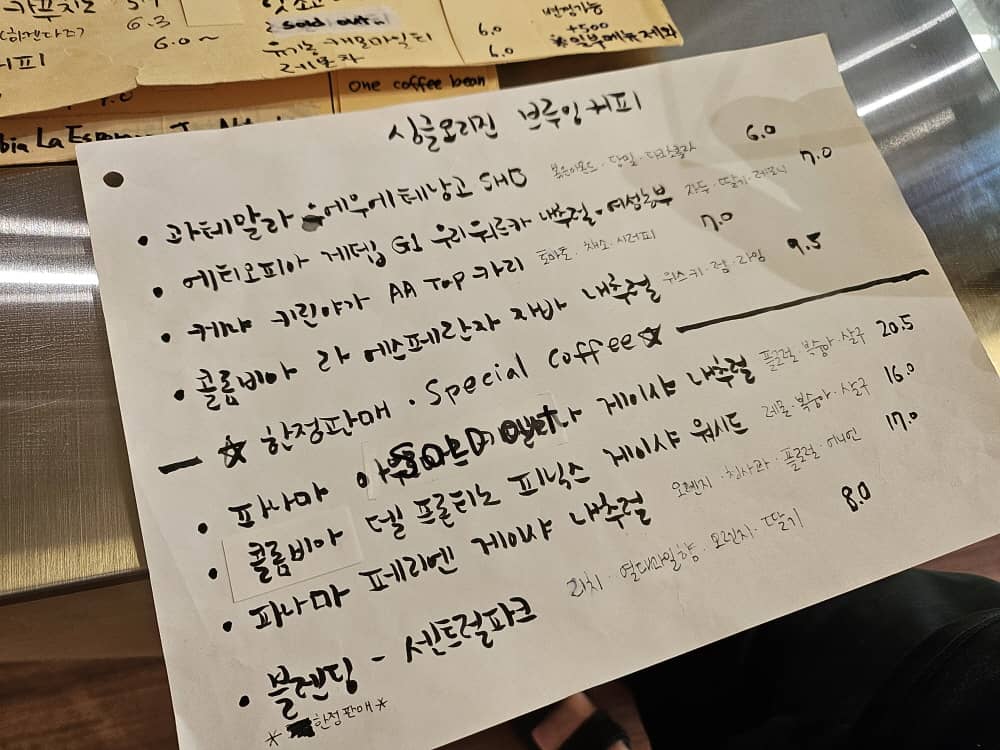 카푸치노 5.7
(하겐다즈) 6.3
6.0~
커피
sold out
유기농 캐모마일티 6.0
레몬차 6.0
변경가능
+500
※일부메뉴제외
one coffee bean
싱글오리진 브루잉커피
• 과테말라 우에우에테낭고 SHB 볶은아몬드·당밀·다크초콜라 6.0
• 에티오피아 게뎁 G1 우리 워르카 내추럴·여성농부 자두·딸기·레몬 7.0
• 케냐 키린야가 AA TOP 카리 토마토·채소·시러피 7.0
• 콜롬비아 라 에스페란자 자바 내추럴 위스키·럼·라임 9.5
☆ 한정판매 · Special Coffee ☆
• 파나마 SOLD Out 게이샤 내추럴 플로럴·복숭아·살구 20.5
• 콜롬비아 델 프론티노 피닉스 게이샤 워시드 레몬·복숭아·살구 16.0
• 파나마 페리엔 게이샤 내추럴 오렌지·청사과·플로럴·허니언 17.0
• 블렌딩 - 센트럴파크 리치·열대과일향·오렌지·딸기 8.0
*한정판매*